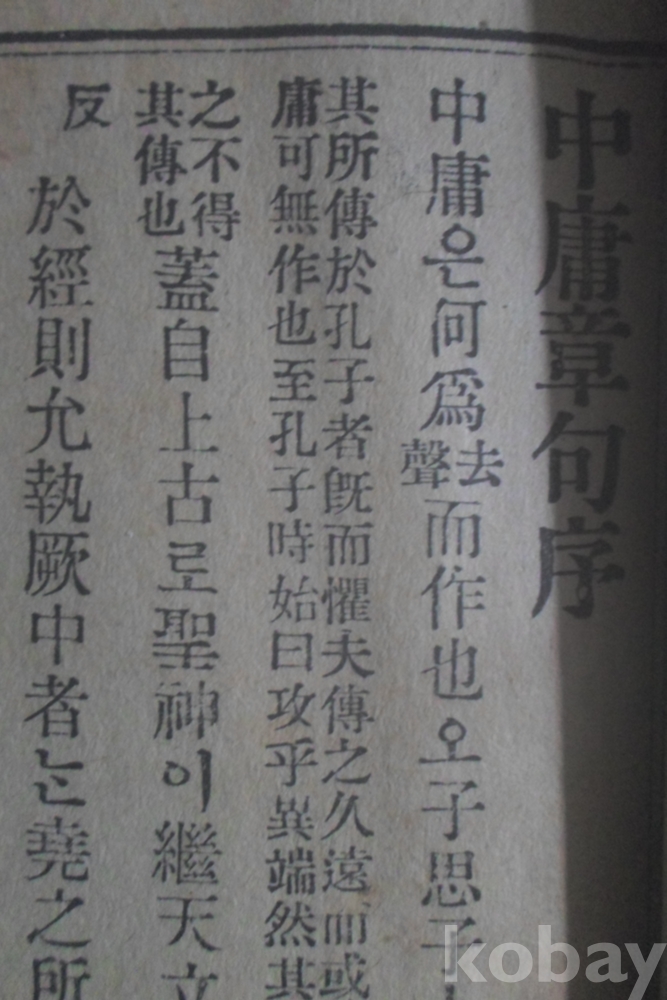 中庸章句序
中庸은何爲去聲而作也오子思子
其所傳於孔子者旣而懼夫傳之久遠而或
庸可無作也至孔子時始曰攻乎異端然其
之不得
其傳也
蓋自上古로聖神이繼天立
反
於經則允執厥中者는堯之所
kobay